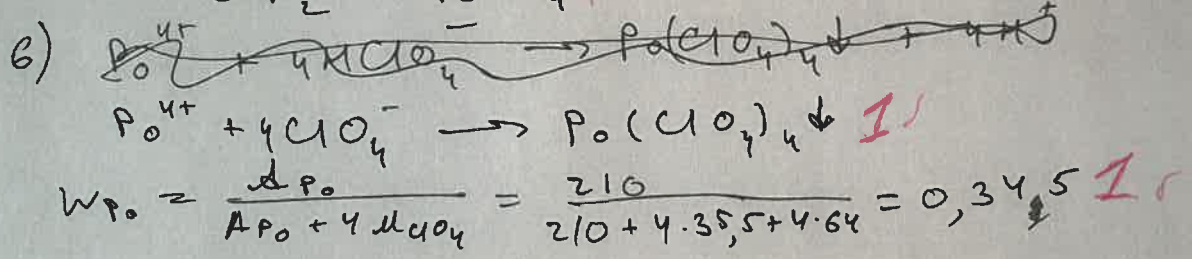 6) Po⁴⁺ + 4HClO₄⁻ → Po(ClO₄)₄↓ + 4H⁺
Po⁴⁺ + 4ClO₄⁻ → Po(ClO₄)₄↓ 1
W_Po = A_Po / (A_Po + 4 M_ClO₄) = 210 / (210 + 4·35,5 + 4·64) = 0,34,5 1